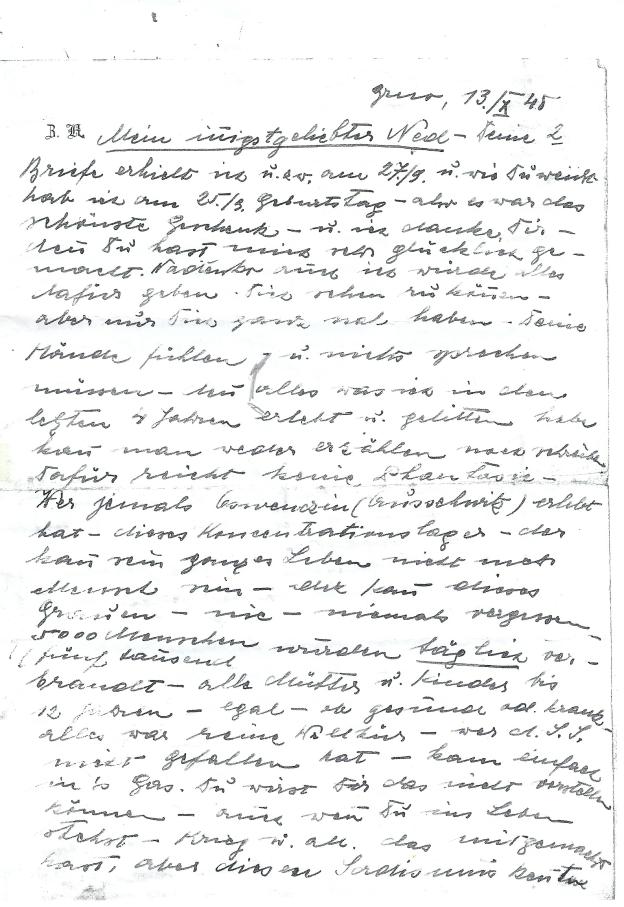 Brno, 13./X 45
B. H. Mein innigstgeliebter Ned – Deine 2
Briefe erhielt ich u.zw. am 27/9. u. wie Du weisst
hab ich am 25./9. Geburtstag – also es war das
schönste Geschenk – u. ich danke Dir –
den Du hast mich sehr glücklich ge-
macht. auch ich würde alles
dafür geben Dich sehen zu können –
aber nur Dich ganz nah haben – Deine
Hände fühlen u. nichts sprechen
müssen – den alles was ich in den
letzten 4 Jahren erlebt u. gelitten habe
kan man weder erzählen noch schreiben
Dafür reicht keine Phantasie –
Wer jemals Oswenzin (Ausschwitz) erlebt
hat – dieses Koncentrationslager – der
kan sein ganzes Leben nicht mehr
Mensch sein – der kan dieses
Grauen – nie – niemals vergessen –
5000 Menschen wurden täglich ver-
(fünf tausend
brandt – alle Mütter u. Kinder bis
12 Jahren – egal – ob gesund od. krank –
alles war reine Willkür – wer d. S.S.
nicht gefallen hat – kam einfach
in's Gas. Du wirst Dir das nicht vorstellen
können – auch wen Du im Leben
stehst – Krieg u. all. das mitgemacht
hast, aber diesen Sadismus